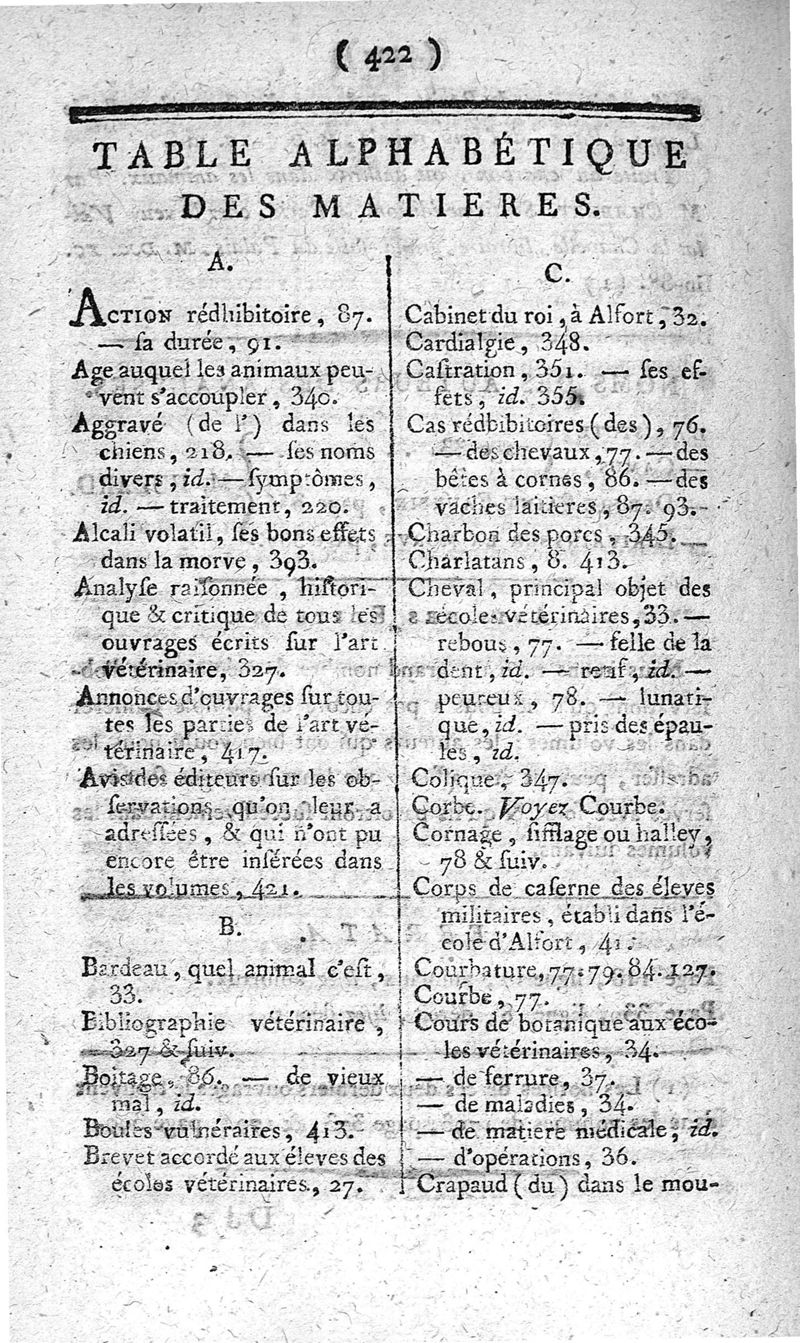 ( 422 )
TABLE ALPHABÉTIQUE
DES MATIERES.
A.
ACTION rédhibitoire, 87.
— ſa durée, 91.
Age auquel les animaux peu-
vent s'accoupler, 340.
Aggravé (de l') dans les
chiens, 218. — ſes noms
divers, id. — ſymptômes,
id. — traitement, 220.
Alcali volatil, ſes bons effets
dans la morve, 393.
Analyſe raiſonnée, hiſtori-
que & critique de tous les
ouvrages écrits ſur l'art
vétérinaire, 327.
Annonces d'ouvrages ſur tou-
tes les parties de l'art vé-
térinaire, 417.
Avis des éditeurs ſur les ob-
ſervations qu'on leur a
adreſſées, & qui n'ont pu
encore être inſérées dans
les volumes, 421.
B.
Bardeau, quel animal c'eſt,
33.
Bibliographie vétérinaire,
327 & ſuiv.
Boitage, 86. — de vieux
mal, id.
Boules vulnéraires, 413.
Brevet accordé aux éleves des
écoles vétérinaires, 27.
C.
Cabinet du roi, à Alfort, 32.
Cardialgie, 348.
Caſtration, 351. — ſes ef-
fets, id. 355.
Cas rédhibitoires (des), 76.
— des chevaux, 77. — des
bêtes à cornes, 86. — des
vaches laitieres, 87. 93.
Charbon des porcs, 345.
Charlatans, 8. 413.
Cheval, principal objet des
écoles vétérinaires, 33. —
rebours, 77. — ſelle de la
dent, id. — retif, id. —
peureux, 78. — lunati-
que, id. — pris des épau-
les, id.
Colique, 347.
Corbe. Voyez Courbe.
Cornage, ſifflage ou halley,
78 & ſuiv.
Corps de caſerne des éleves
militaires, établi dans l'é-
cole d'Alfort, 41.
Courbature, 77. 79. 84. 127.
Courbe, 77.
Cours de botanique aux éco-
les vétérinaires, 34.
— de ferrure, 37.
— de maladies, 34.
— de matiere médicale, id.
— d'opérations, 36.
Crapaud (du) dans le mou-